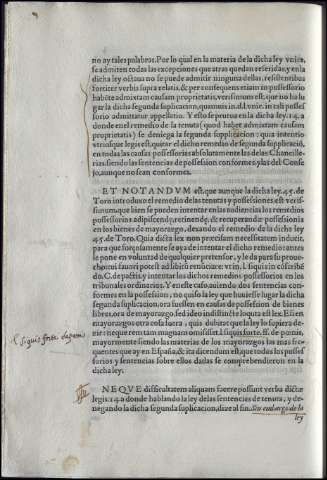 no ay tales palabras. Por lo qual en la materia de la dicha ley vnica,
se admiten todas las excepciones que atras quedan referidas, y en la
dicha ley octaua no se puede admitir ninguna dellas, resistentibus
fortiter verbis supra relatis, & per consequens etiam in possessorio
habēte admixtam causam proprietatis, verisimum est. que no ha lu
gar la dicha segunda suplicacion, quamuis in.d.l.vnic. in tali posses
sorio admitatur appellatio. Y esto se prueua en la dicha ley.14. a
donde en el remedio de la tenuta (quod habet admixtam causam
proprietatis) se deniega la segunda suplicacion: quia intentio
vtriusque legis est, quitar el dicho remedio de segunda supplicació,
en todas las causas possessorias absolutamente las delas Chancille-
rias, siendo las sentencias de possession conformes y las del Conse
jo, aunque no sean conformes.
ET NOTANDVM est, que aunque la dicha ley.45. de
Toro introduxo el remedio de las tenutas y possessiones, est veris
simum que bien se pueden intentar en las audiencias los remedios
possessorios adipiscendę, retinendę, & recuperandę possessionis
en los bienes de mayorazgo, dexando el remedio de la dicha ley
45. de Toro. Quia dicta lex non pręcisam necessitatem induxit,
para que forçosamente se aya de intentar el dicho remedio: antes
se pone en voluntad de qualquier pretensor, y le da para su proue-
cho: cui fauori potest ad libitū renūciare: vt in.l. si quis in cōscribē
do. C. de pactis, y intentar los dichos remedios possessorios en los
tribunales ordinarios. Y en este caso, auiendo dos sentencias con-
formes en la possession, no quiso la ley que huuiesse lugar la dicha
segunda suplicacion, ora fuessen en causas de possession de bienes
libres, ora de mayorazgo, sed ideo indistincte loquuta est lex. Si en
mayorazgos otra cosa fuera, quis dubitat que la ley lo supiera de-
zir: neque rem tam magnam omisisset.l. si quis forte. ff. de pœnis,
mayormente siendo las materias de los mayorazgos las mas fre-
quentes que ay en España, & ita dicendum est, que todos los posses
sorios y sentencias sobre ellos dadas se comprehendieron en la
dicha ley.
l. si quis forte de pœnis
NEQVE difficultatem aliquam facere possunt verba dictæ
legis.14. a donde hablando la ley delas sentencias de tenuta, y de-
negando la dicha segunda suplicacion, dize al fin. Sin embargo de la
ley